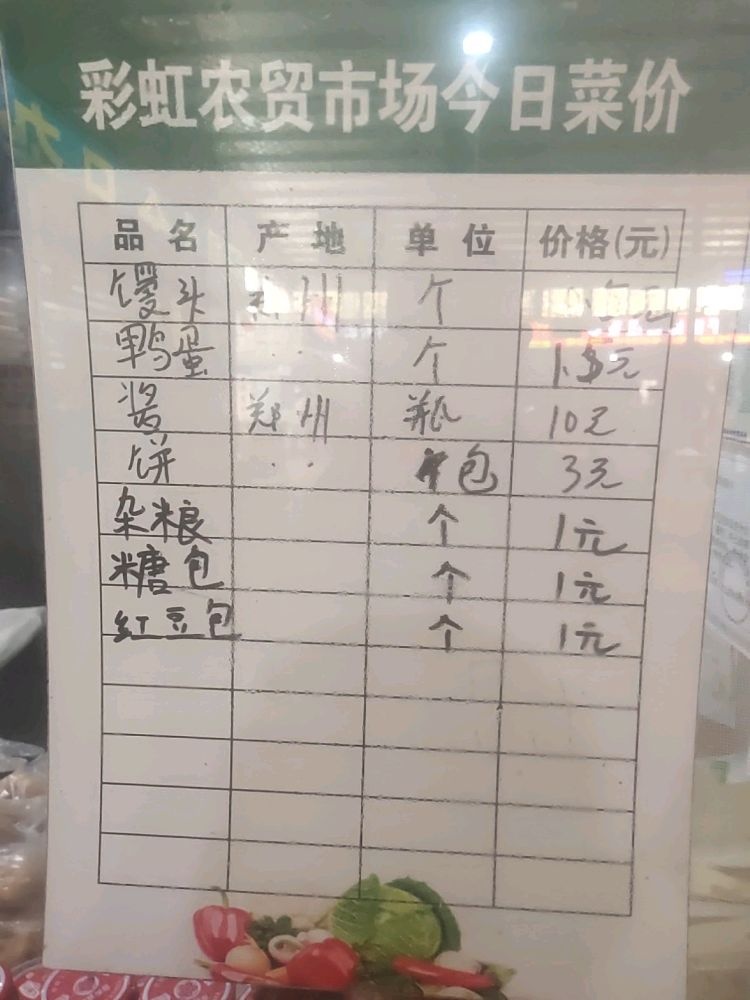 彩虹农贸市场今日菜价
品名 产地 单位 价格(元)
馒头 郑州 个
鸭蛋 .. 个 1.5元
酱 郑州 瓶 10元
饼 .. 包 3元
杂粮 个 1元
糖包 个 1元
红豆包 个 1元